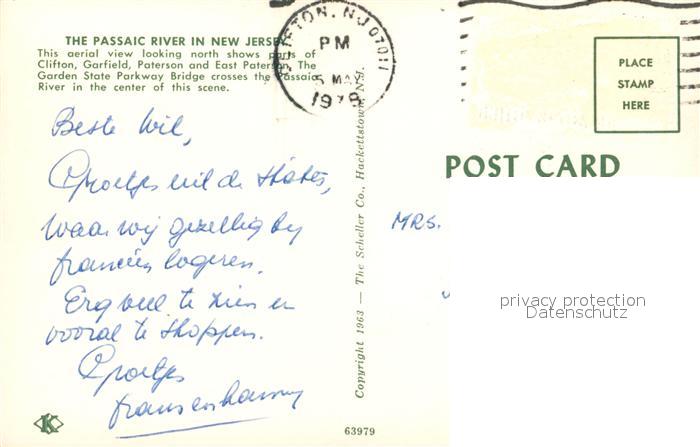 THE PASSAIC RIVER IN NEW JERSEY
This aerial view looking north shows parts of
Clifton, Garfield, Paterson and East Paterson. The
Garden State Parkway Bridge crosses the Passaic
River in the center of this scene.
CLIFTON, N.J. 07011
PM
5 MAY
PLACE
STAMP
HERE
POST CARD
Beste Wil,
Groetjes uit de States,
waar wij gezellig by
francien logeren.
Erg veel te zien en
vooral te shoppen.
Groetjes
frans en
Copyright 1963 — The Scheller Co., Hackettstown, N.J.
MRS.
privacy protection
Datenschutz
K
63979